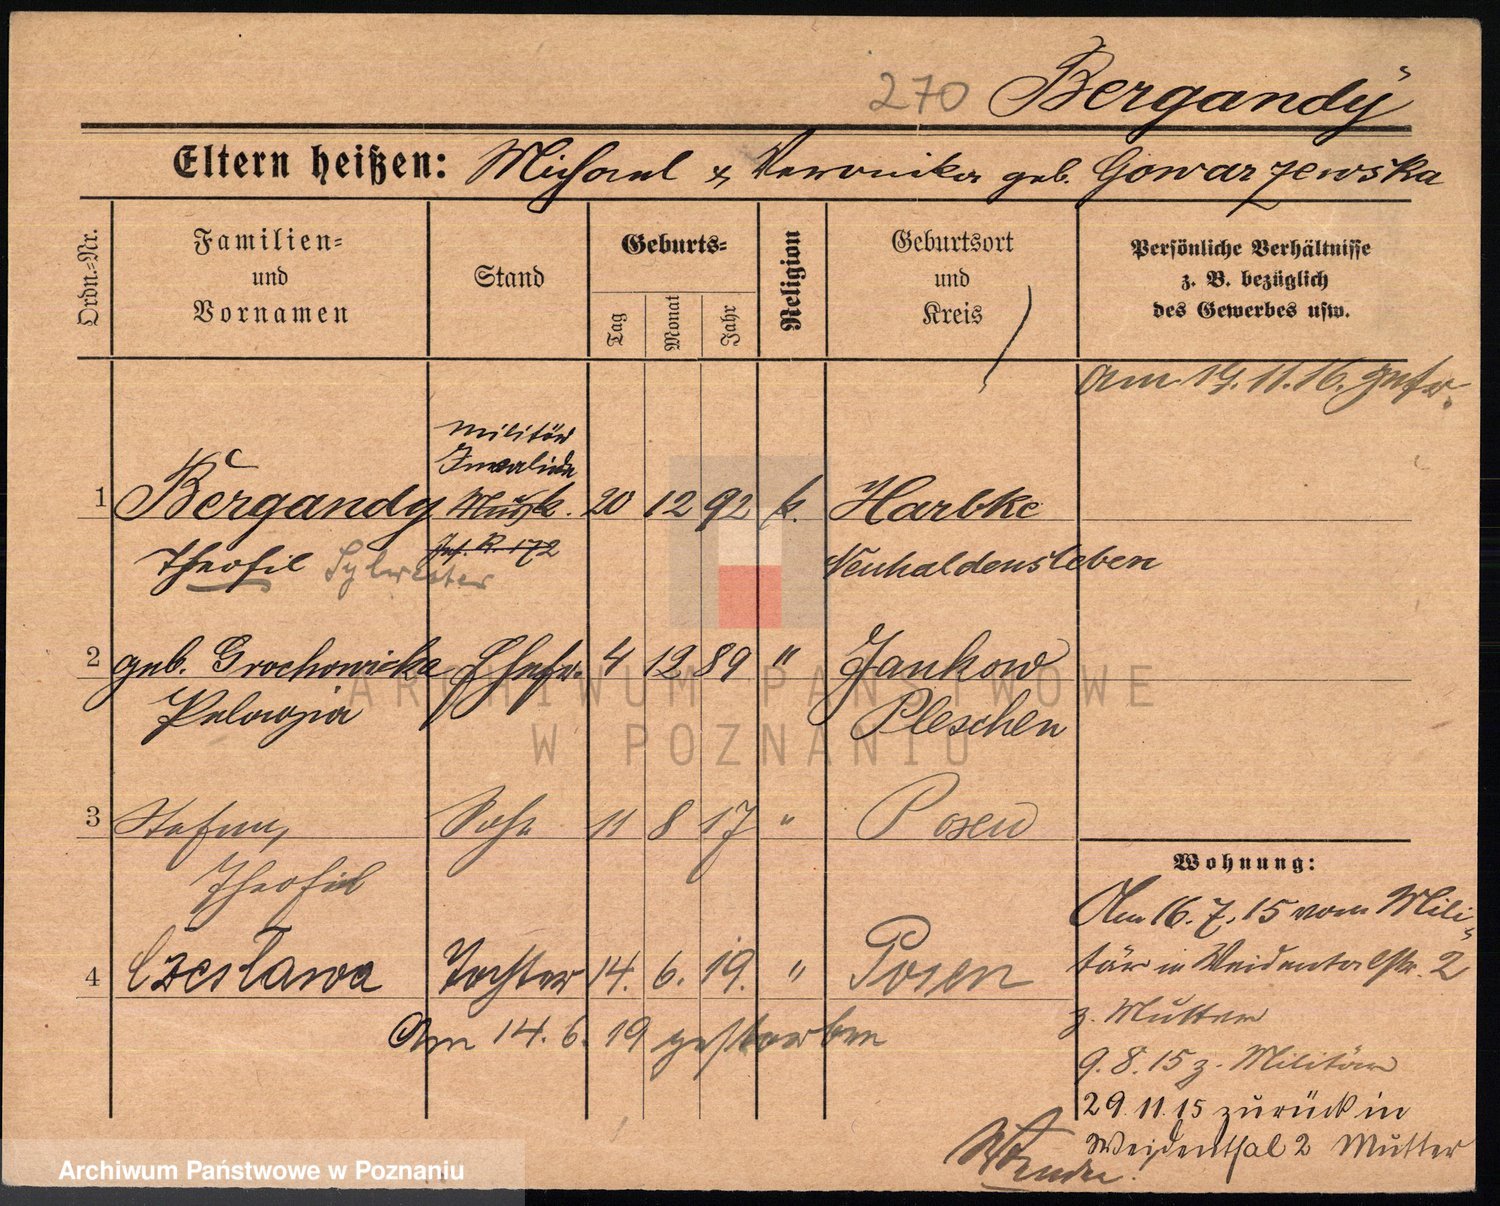 270 Bergandy
Eltern heißen: Michael & Veronika geb. Gowarzewska
Ordn.-Nr.
Familien-
und
Vornamen
Stand
Geburts-
Tag
Monat
Jahr
Religion
Geburtsort
und
Kreis
Persönliche Verhältnisse
z. B. bezüglich
des Gewerbes usw.
Militär
Invalide
1 Bergandy Musk. 20 12 92 k. Harbke
Theofil Sylwester Inf. R. 172 Neuhaldensleben
2 geb. Grochowicka Ehefr. 4 12 89 " Jankow
Pelagia Pleschen
3 Stefan, Sohn 11 8 17 " Posen
Theofil
4 Czesława Tochter 14. 6. 19. " Posen
Am 14. 6. 19 gestorben
Am 19. 11. 16.
Wohnung:
Am 16. 7. 15 vom Mili-
tär in Weidentalstr. 2
z. Mutter
9. 8. 15 z. Militär
29. 11. 15 zurück in
Weidenthal 2 Mutter
Wende.
ARCHIWUM PAŃSTWOWE
W POZNANIU
Archiwum Państwowe w Poznaniu